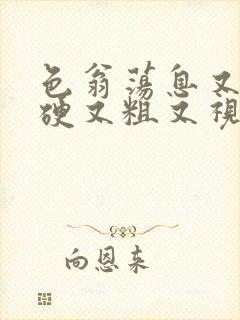 色翁荡息又
硬又粗又视
向恩来